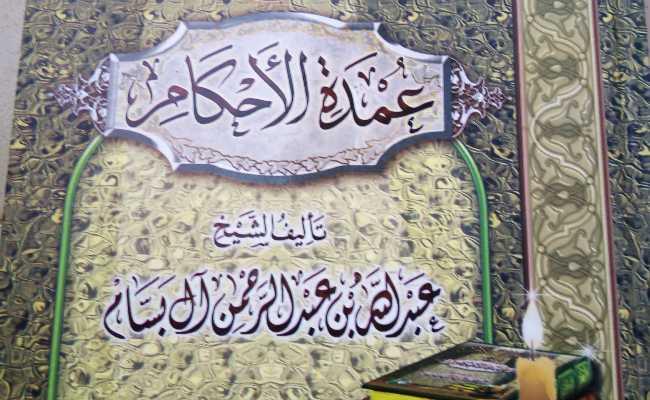 عُمْدَةِ الأَحْكَامِ
تأليف الشَّيْخ
عَبْدُ اللَّه بْن عَبْد الرَّحْمٰن آل بَسَّام